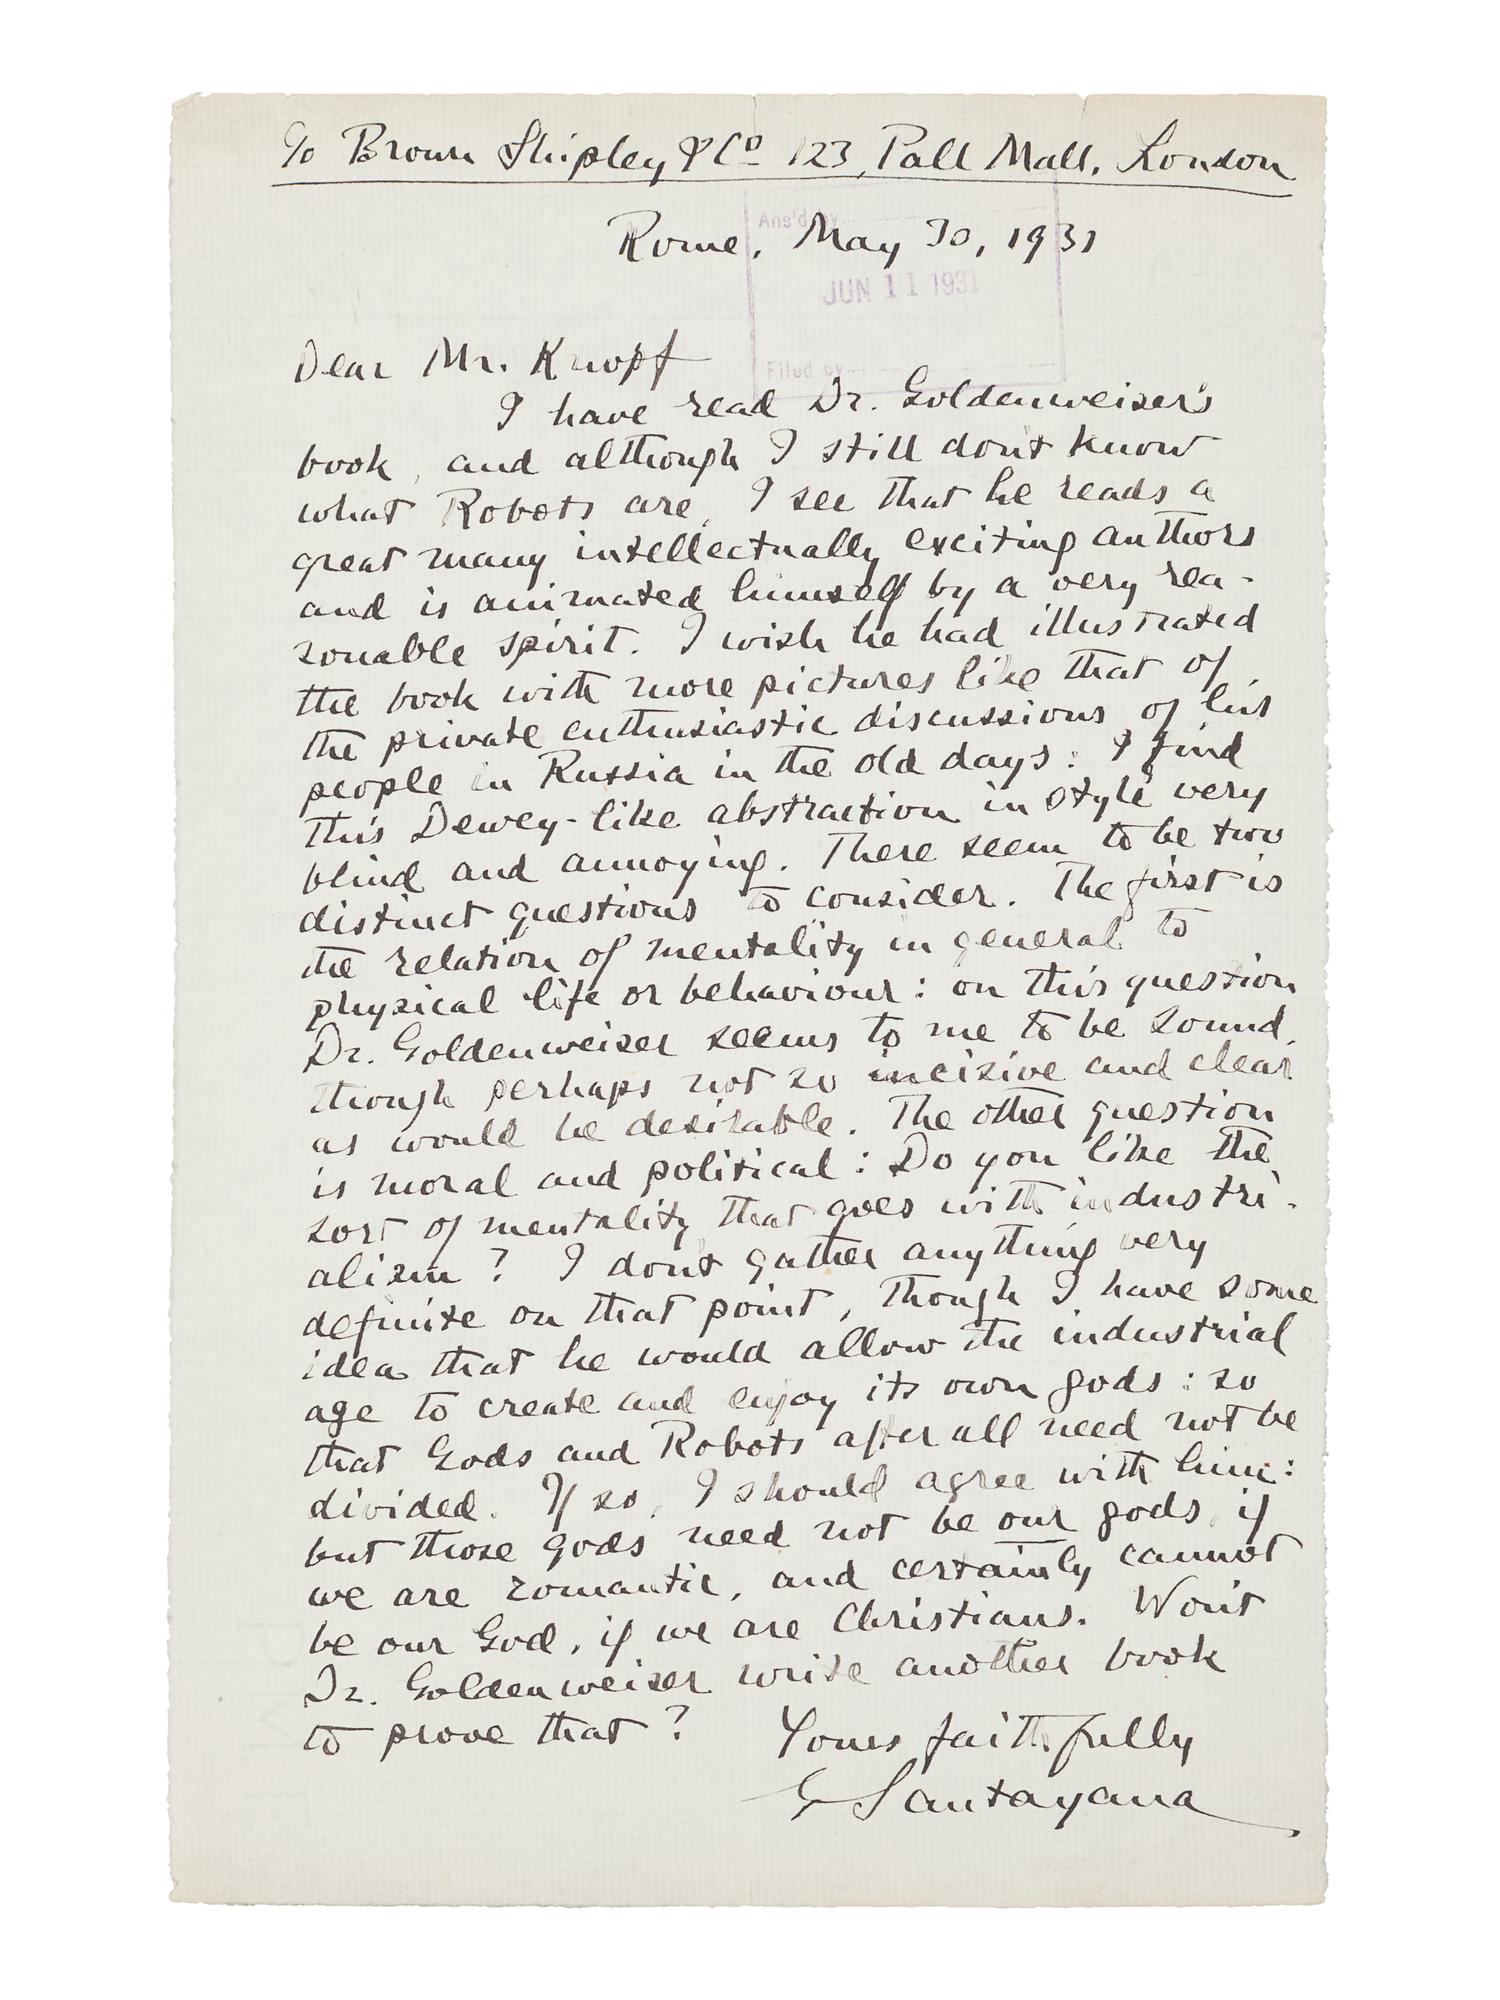 c/o Brown Shipley & Co 123, Pall Mall, London
Rome, May 30, 1931
Ans'd by
JUN 11 1931
Filed by
Dear Mr. Knopf
I have read Dr. Goldenweiser's
book, and although I still don't know
what Robots are, I see that he reads a
great many intellectually exciting authors
and is animated himself by a very rea-
sonable spirit. I wish he had illustrated
the book with more pictures like that of
the private enthusiastic discussions of his
people in Russia in the old days: I find
this Dewey-like abstraction in style very
blind and annoying. There seem to be two
distinct questions to consider. The first is
the relation of mentality in general to
physical life or behaviour: on this question
Dr. Goldenweiser seems to me to be sound,
though perhaps not so incisive and clear
as would be desirable. The other question
is moral and political: Do you like the
sort of mentality that goes with industri-
alism? I don't gather anything very
definite on that point, though I have some
idea that he would allow the industrial
age to create and enjoy its own gods: so
that Gods and Robots after all need not be
divided. If so, I should agree with him:
but those gods need not be our gods, if
we are romantic, and certainly cannot
be our God, if we are Christians. Won't
Dr. Goldenweiser write another book
to prove that?
Yours faithfully
G Santayana